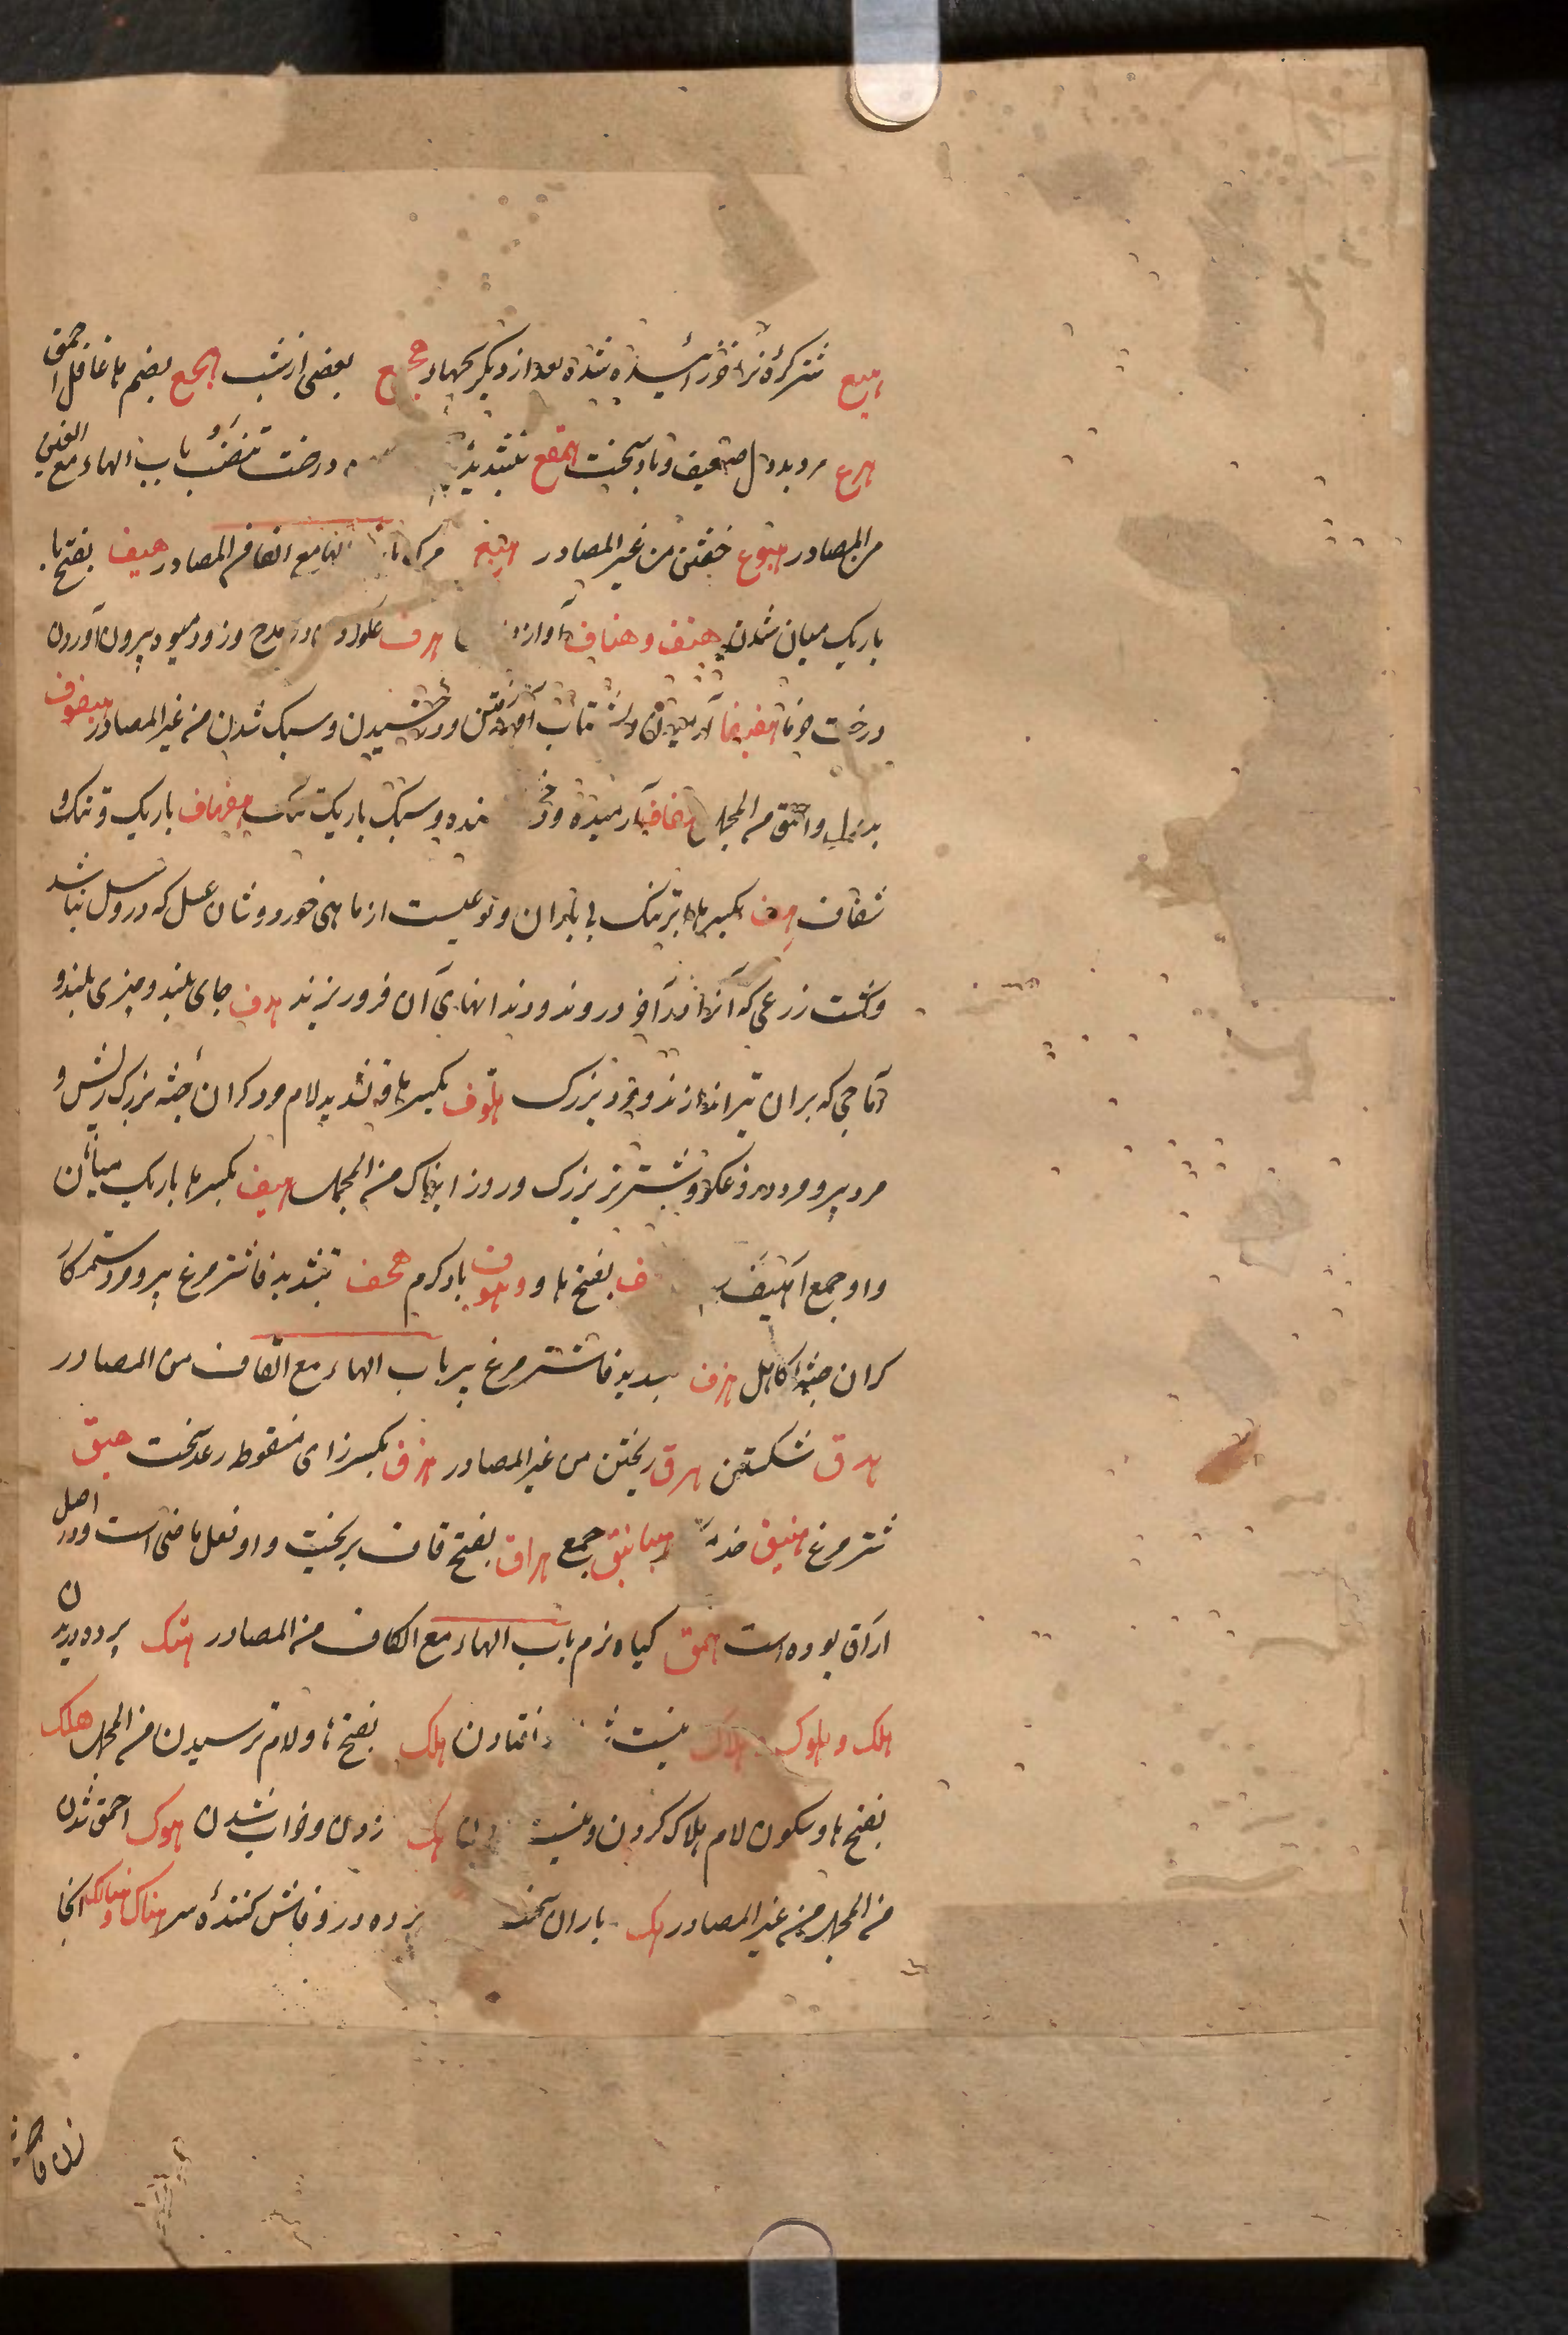 هبع شتر کرهٔ نر آخر زائیده شده بعد از دیکر بچها هجیع بعضی از شب هجع بضم ها غافل احمق
هرع مرد بددل ضعیف و باد سخت همقع بتشدید درخت تنضب باب الهاء مع الغین
من المصادر هبوغ خفتن من غیر المصادر هیغ مرک باب الهاء مع الفا من المصادر هیف بفتح ها
باریک میان شدن هتف و هتاف آواز هرف غلو در مدح و زود میوه بیرون آوردن
درخت خرما هفیف آرمیدن و شتاب رفتن و درخشیدن و سبک شدن من غیر المصادر
بددل و احمق من المجمل هفاف آرمیده و سبک باریک هفهاف باریک و تنک
شفاف هف بکسر ها ابر تنک بی باران و نوعیست از ماهی خورد و شان عسل که درو عسل نباشد
و کشت زرعی که آنرا دروند و دندانهای آن فرو ریزند هدف جای بلند و چیزی بلند و
آماجی که بران تیر اندازند و مرد بزرک هلوف بکسر ها و تشدید لام مرد کران جثه بزرک ریش و
مرد پیر و مرد دروغکو و شتر نر بزرک و روز ابرناک من المجمل هیف بکسر ها باریک میانان
و او جمع اهیف ف بفتح ها و هوف باد کرم هجف بتشدید فا شتر مرغ پیر و مرد ستمکار
کران جثهٔ کاهل هزف بتشدید فا شتر مرغ پیر باب الهاء مع القاف من المصادر
هدق شکستن هرق ریختن من غیر المصادر هزق بکسر زای منقوط رعد سخت هیق
شتر مرغ هبنیق خدمتکار هبانیق جمع هراق بفتح قاف بریخت و او فعل ماضی است و در اصل
اراق بوده است همق کیاه نرم باب الهاء مع الکاف من المصادر هتک پرده دریدن
هلک و هلوک و هلاک نیست شدن و افتادن هلک بفتح ها و لام ترسیدن من المجمل هلک
بفتح ها و سکون لام هلاک کردن و نیست هک زدن و خواب شدن هوک احمق شدن
من المجمل من غیر المصادر هک باران سخت پرده در و فاش کنندهٔ سر هناک و هنالک آنجا